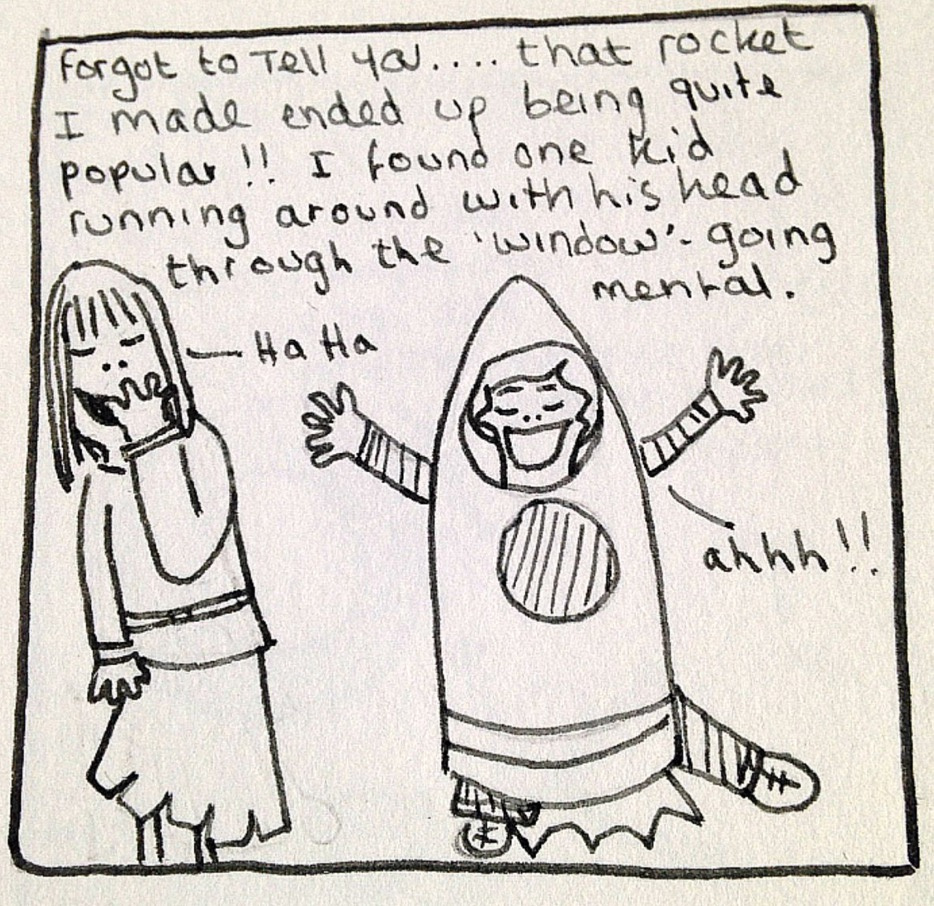 Forgot to Tell ya.... that rocket
I made ended up being quite
popular!! I found one kid
running around with his head
through the 'window'- going
mental.
Ha Ha
ahhh!!